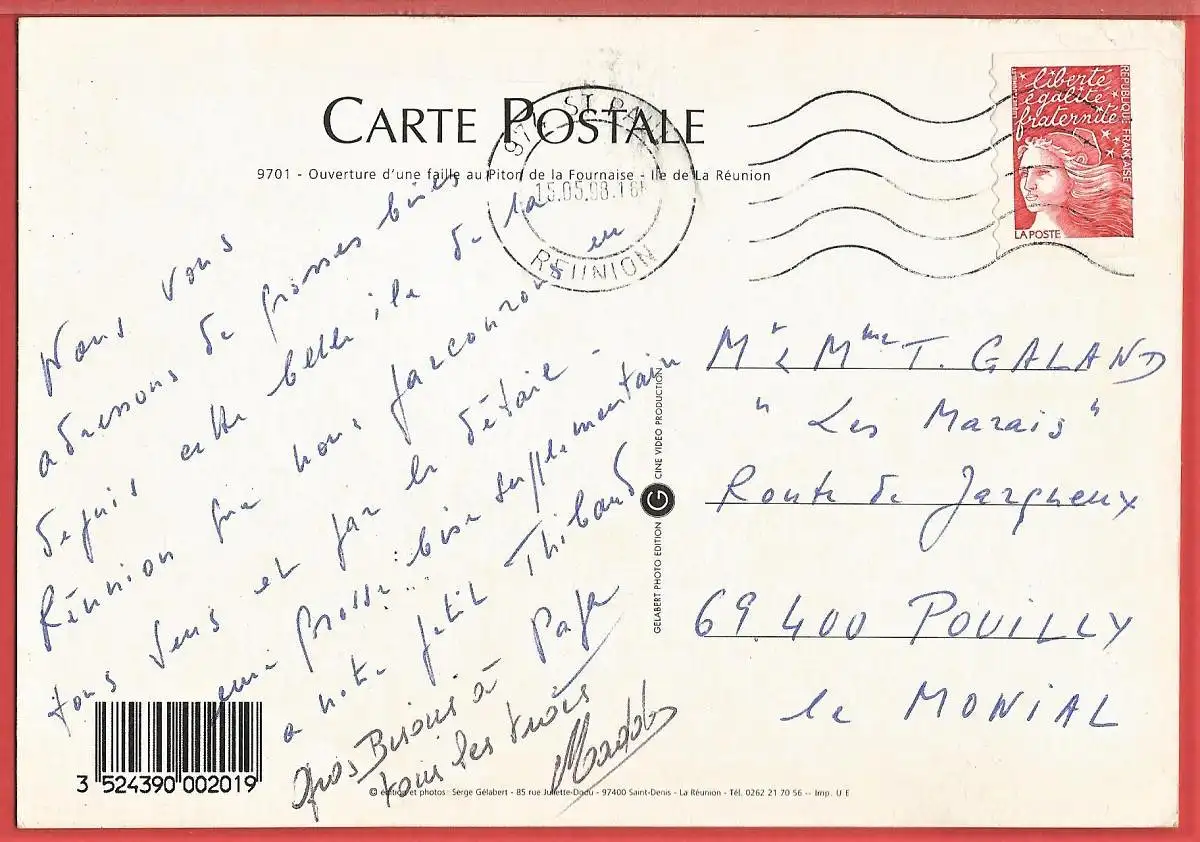 CARTE POSTALE
9701 - Ouverture d'une faille au Piton de la Fournaise - Ile de La Réunion
974 ST PAUL
15.05.98.18
REUNION
liberté
égalité
fraternité
REPUBLIQUE FRANÇAISE
LA POSTE
Nous vous
adressons de grosses bises
depuis cette belle île de la
Réunion que nous parcourons en
tous sens et par le détail -
une grosse bise supplementaire
a notre petit Thibaud
Papa
Gros Bisous à
tous les trois
Mr & Mme T. GALAND
"Les Marais"
Route de Jargneux
69 400 POUILLY
le MONIAL
GELABERT PHOTO EDITION G CINE VIDEO PRODUCTION
3 524390 002019
© édition et photos: Serge Gélabert - 85 rue Juliette-Dodu - 97400 Saint-Denis - La Réunion - Tél. 0262 21 70 56 -- Imp. U E